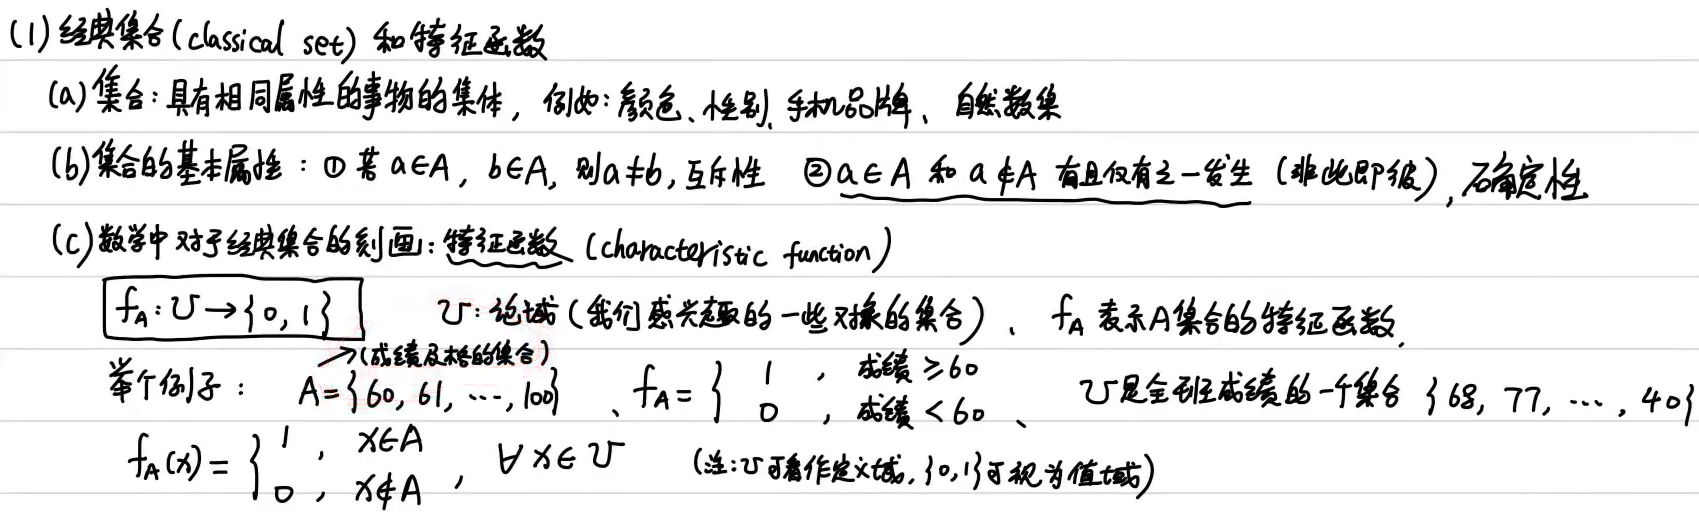 (1) 经典集合(classical set) 和特征函数
(a) 集合：具有相同属性的事物的集体，例如：颜色、性别、手机品牌、自然数集
(b) 集合的基本属性：① 若 a∈A，b∈A，则a≠b，互斥性 ②a∈A 和 a∉A 有且仅有之一发生（非此即彼），确定性
(c) 数学中对于经典集合的刻画：特征函数 (characteristic function)
f_A: U→{0,1} U：论域（我们感兴趣的一些对象的集合）、f_A 表示A集合的特征函数.
→(成绩及格的集合)
举个例子： A={60, 61, ⋯, 100}、f_A = { 1，成绩≥60 0，成绩<60 、 U是全班成绩的一个集合 {68, 77, ⋯, 40}
f_A(x) = { 1，x∈A 0，x∉A ，∀x∈U （注：U可看作定义域，{0,1}可视为值域）